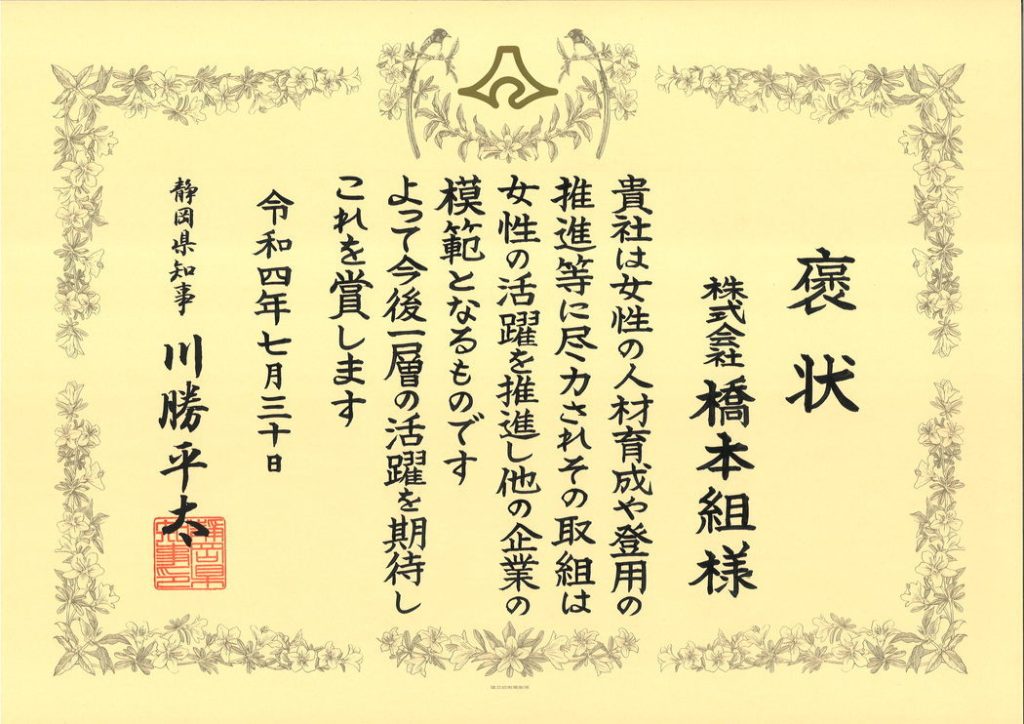 褒状
株式会社 橋本組様
貴社は女性の人材育成や登用の
推進等に尽力されその取組は
女性の活躍を推進し他の企業の
模範となるものです
よって今後一層の活躍を期待し
これを賞します
令和四年七月三十日
静岡県知事 川勝平太